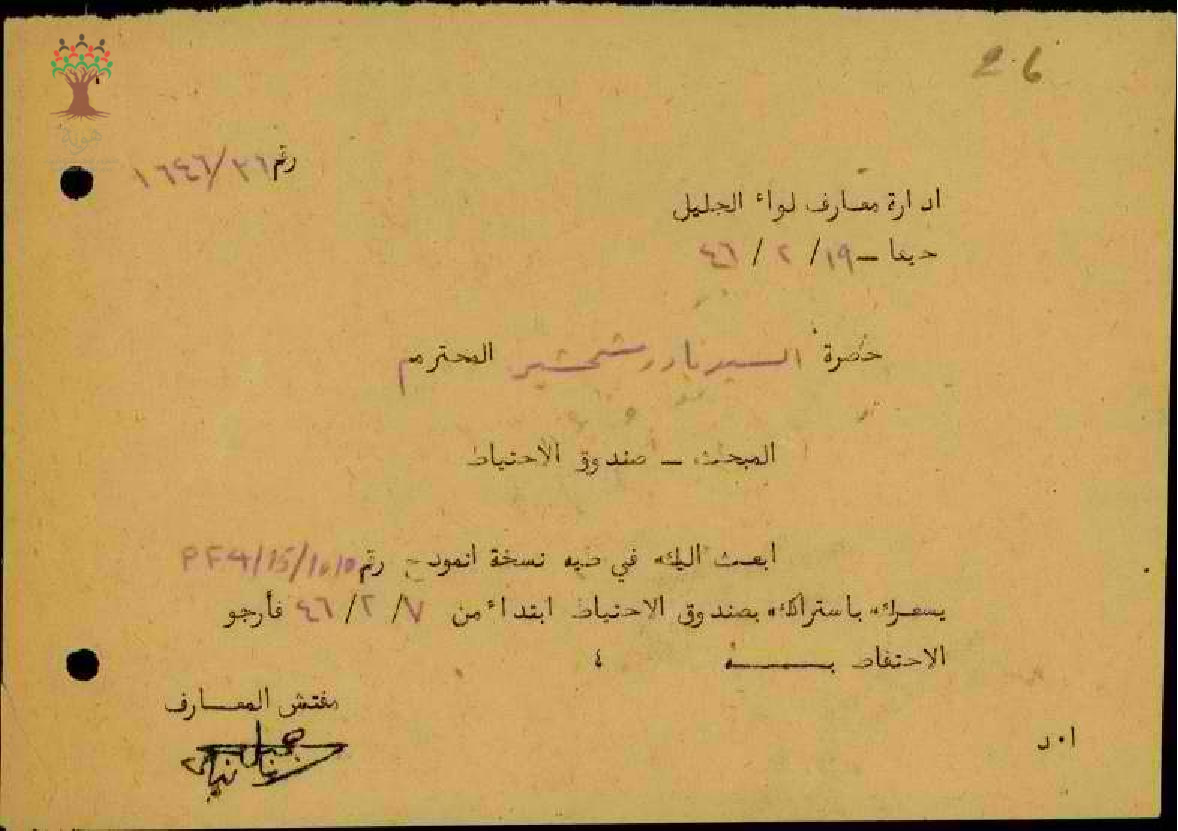 26
هوية
رقم ١٦٤٦/٣٦
ادارة معارف لواء الجليل
حيفا – ١٩ / ٢ / ٤٦
حضرة السيد نادر شمشير المحترم
المبحث – صندوق الاحتياط
ابعث اليك في طيه نسخة انموذج رقم PF4/15/1010
يشعرك باشتراكك بصندوق الاحتياط ابتداء من ٧/ ٢/ ٤٦ فأرجو
الاحتفاظ بــه ٤
مفتش المعارف
ا٠د